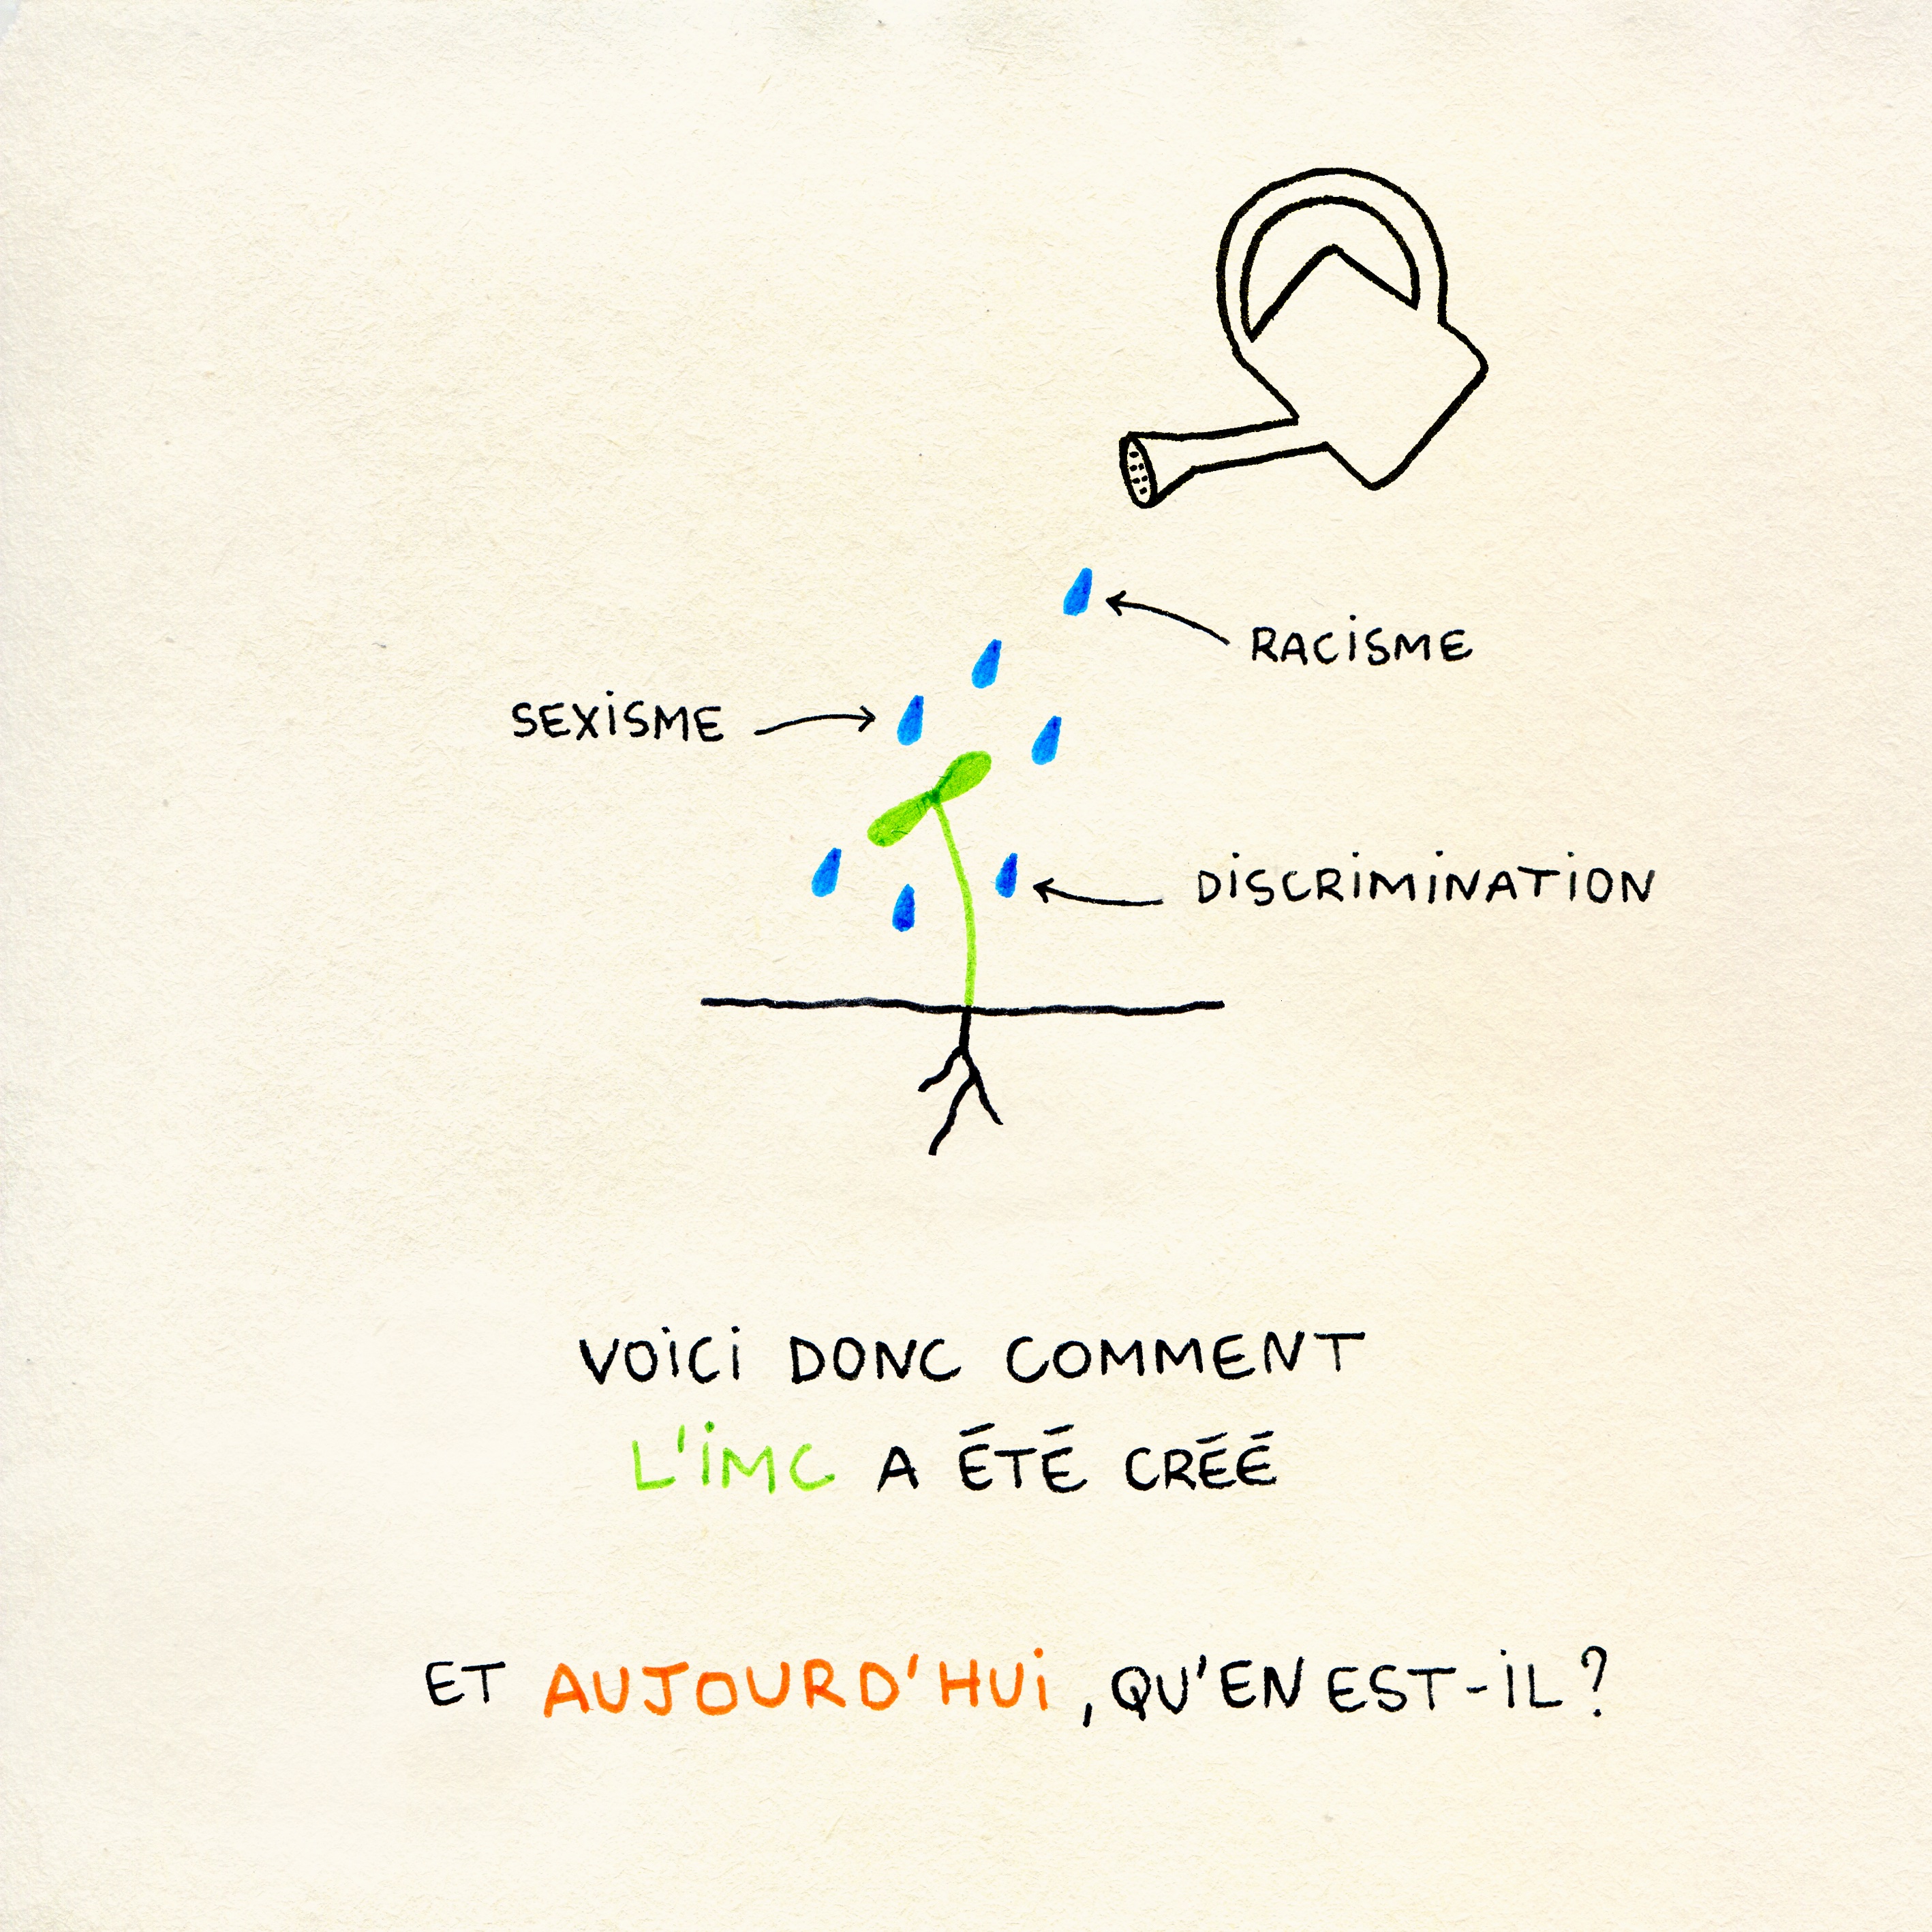 RACISME
SEXISME
DISCRIMINATION
VOICI DONC COMMENT
L'IMC A ÉTÉ CRÉÉ
ET AUJOURD'HUI, QU'EN EST-IL ?